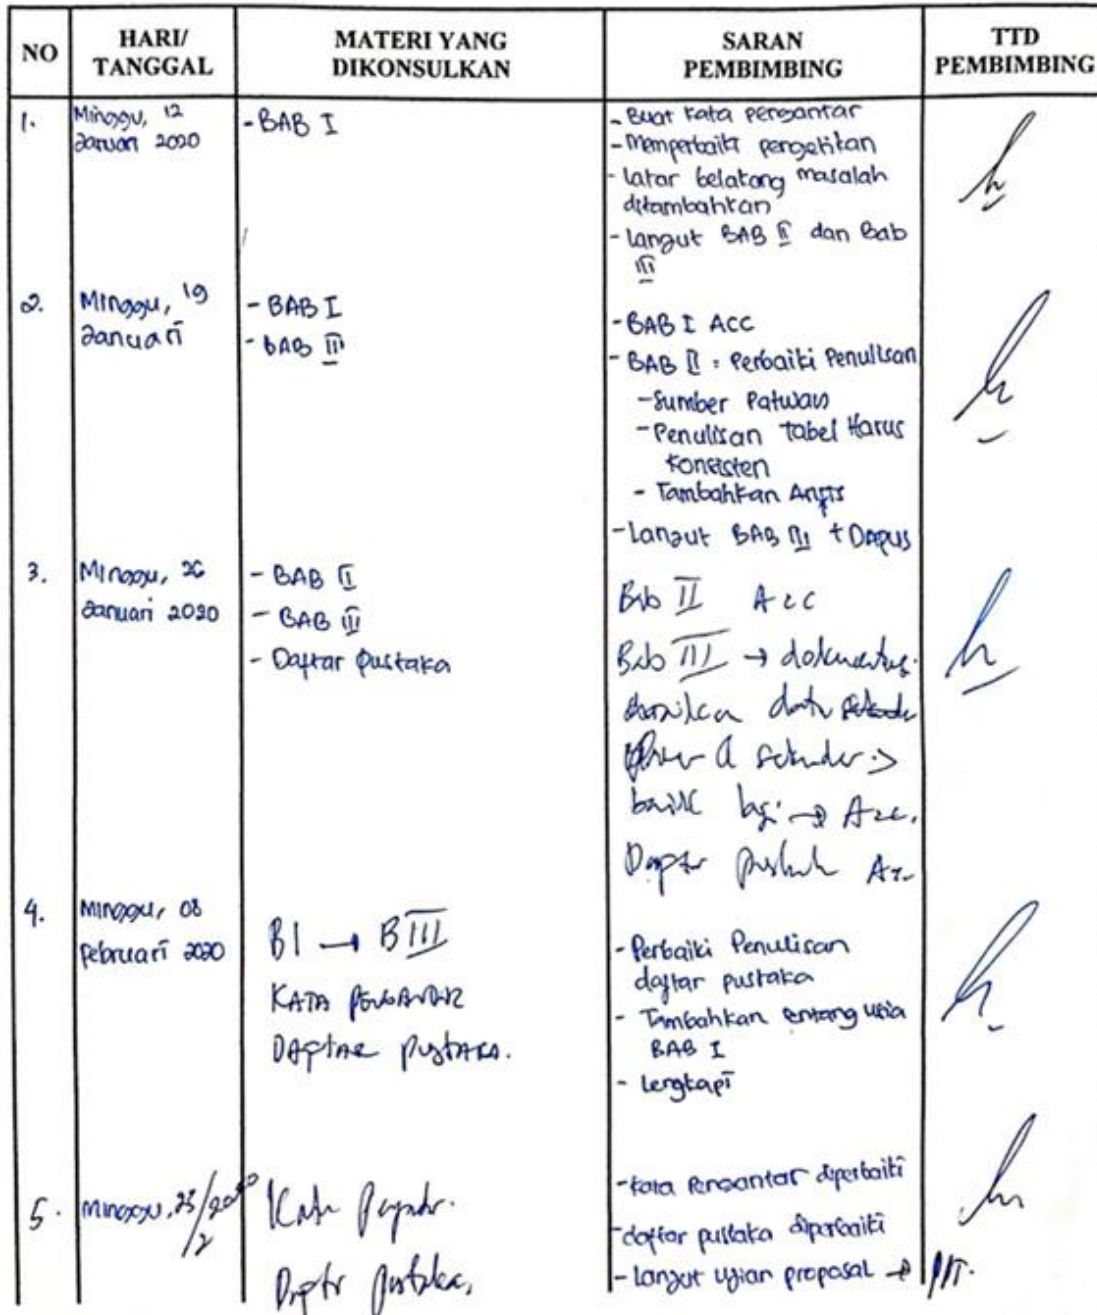 NO
HARI/
TANGGAL
MATERI YANG
DIKONSULKAN
SARAN
PEMBIMBING
TTD
PEMBIMBING
1.
Minggu, 12
Januari 2020
- BAB I
- Buat kata pengantar
- Memperbaiki pengetikan
- latar belakang masalah
ditambahkan
- Lanjut BAB II dan Bab
III
2.
Minggu, 19
Januari
- BAB I
- BAB II
- BAB I ACC
- BAB II : Perbaiki Penulisan
- Sumber
- Penulisan Tabel Harus
Konsisten
- Tambahkan
- Lanjut BAB III + Dapus
3.
Minggu, 26
Januari 2020
- BAB II
- BAB III
- Daftar Pustaka
Bab II Acc
Bab III →
data
sekunder →
→ Acc.
Daftar pustaka Acc
4.
Minggu, 08
Februari 2020
BI → BIII
KATA PENGANTAR
DAFTAR PUSTAKA.
- Perbaiki Penulisan
daftar pustaka
- Tambahkan entang usia
BAB I
- Lengkapi
5.
Minggu, 23/2
Kata Pengantar.
Daftar pustaka,
- Kata Pengantar diperbaiki
- daftar pustaka diperbaiki
- Lanjut ujian proposal → PPT.